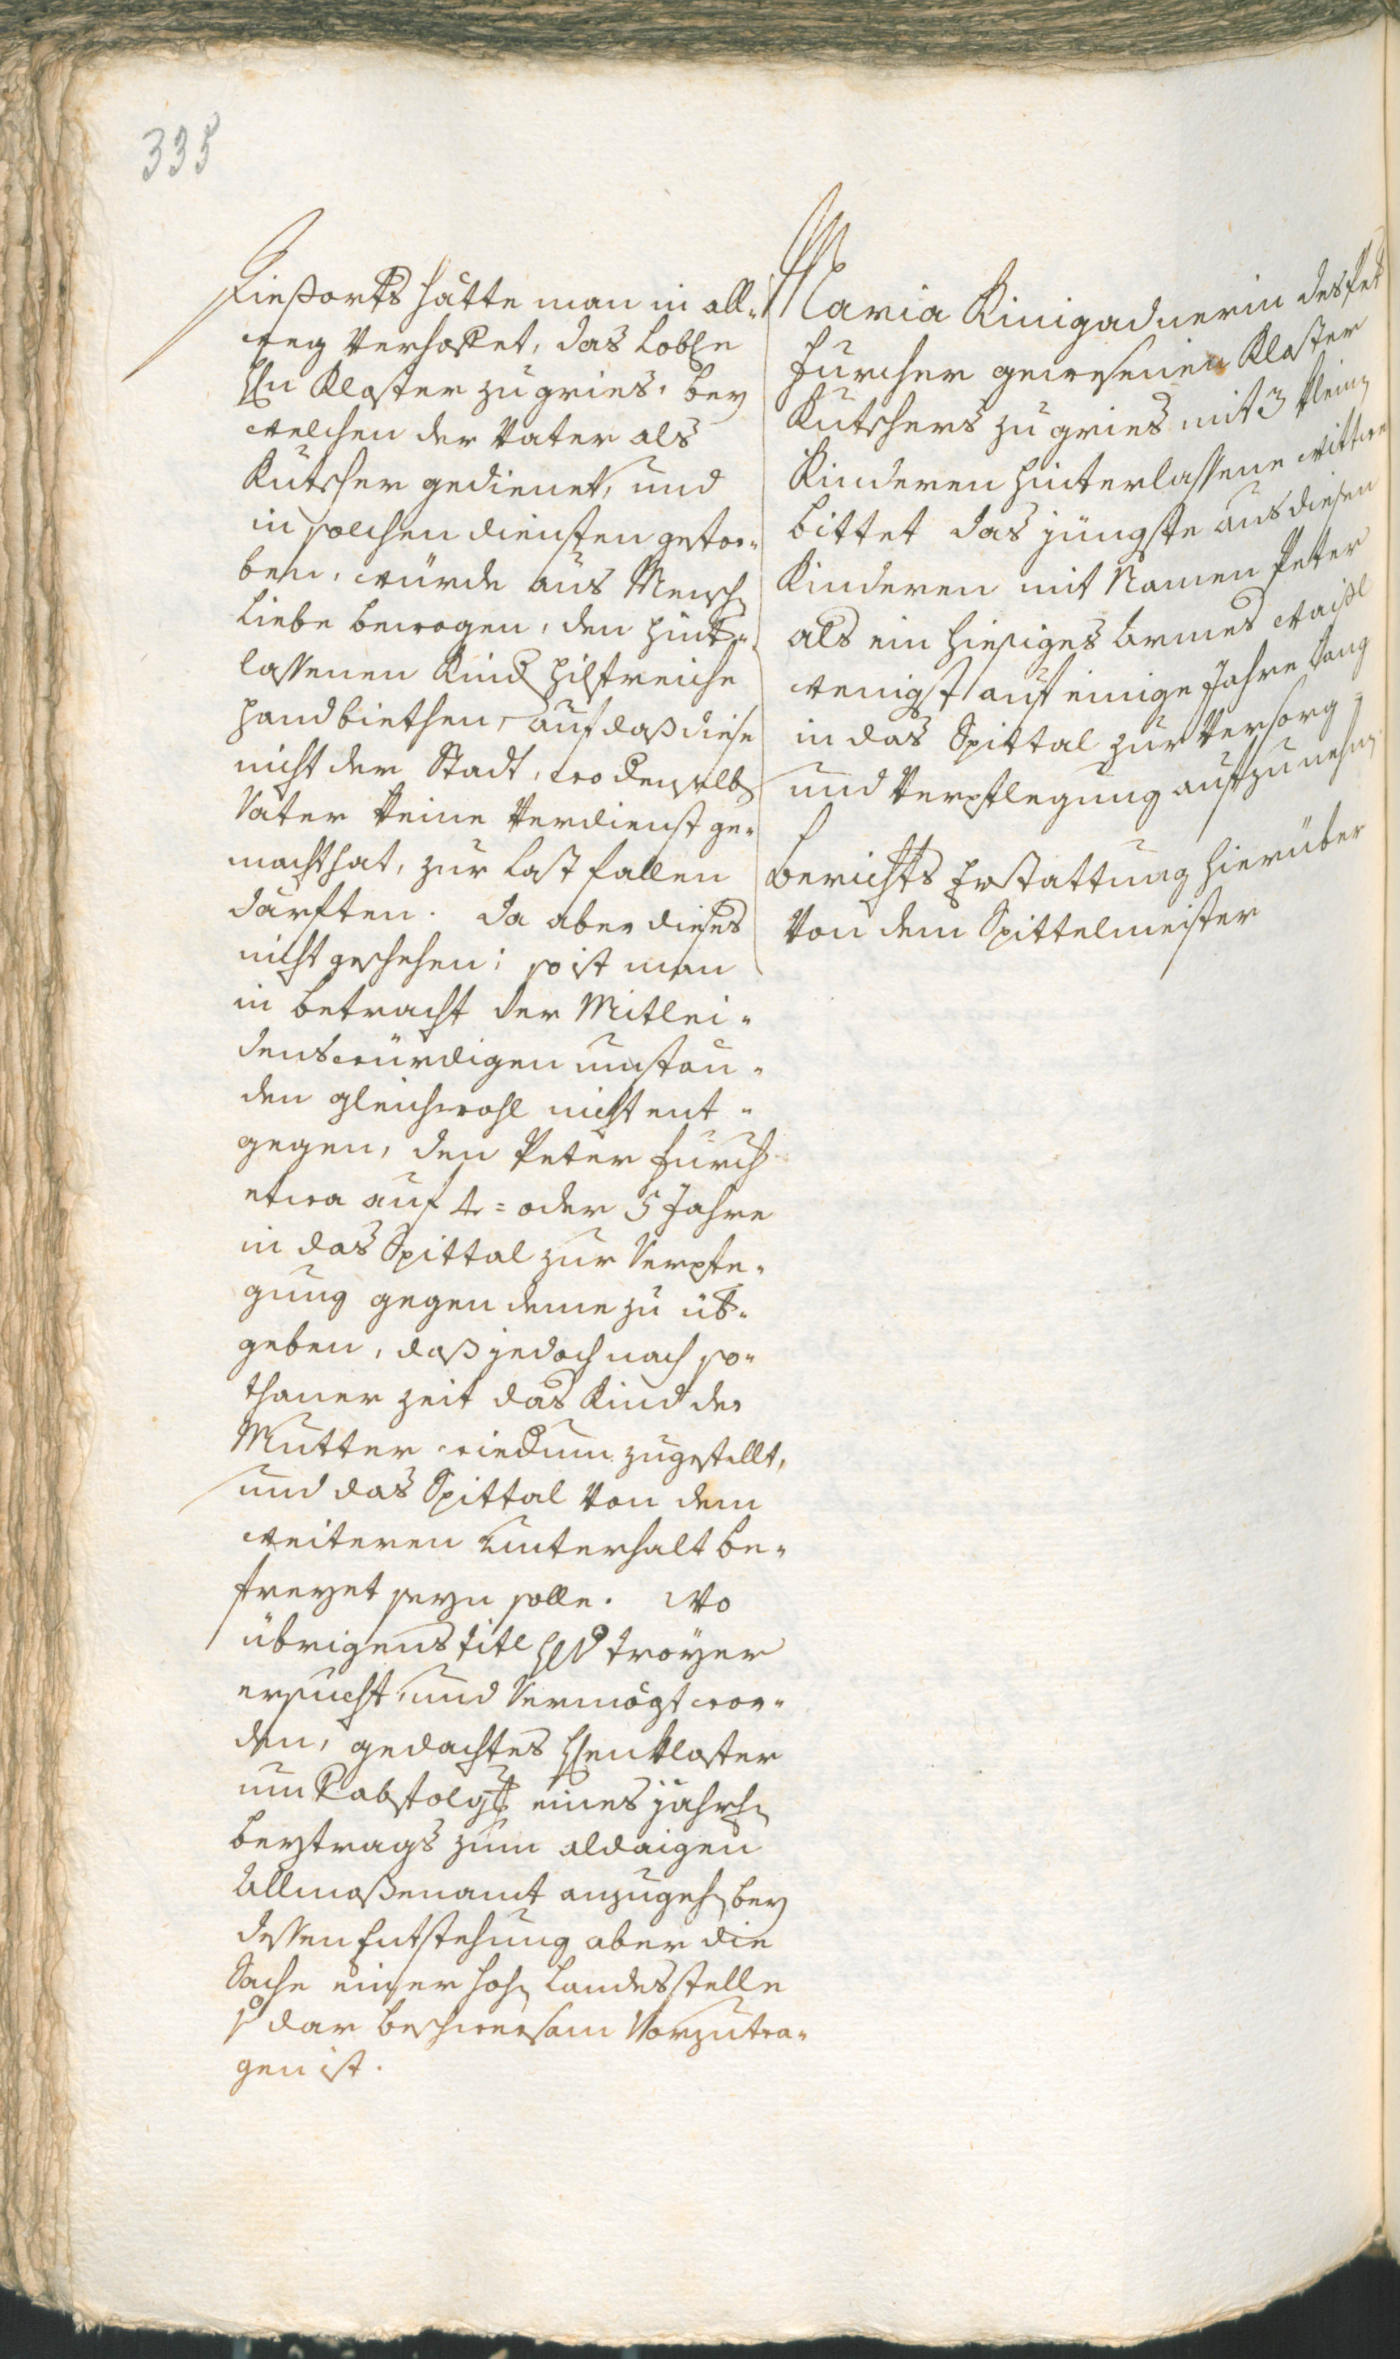 335
Hießorts hätte man in all-
weg verhoffet, das lobln
Hln Kloster zu gries, bey
welchen der Vater als
Kutscher gedienet, und
in solchen diensten gestor-
ben, würde aus Mensch
liebe bewogen, den hinter-
lassenen Kind hilfreiche
Hand biethen, auf daß diese
nicht der Stadt, wo denselb
Vater keine Verdienst ge-
macht hat, zur last fallen
därften. Da aber dieses
nicht geschehen; so ist man
in betracht der Mitlei-
denswürdigen umstän-
den gleichwohl nicht ent-
gegen, den Peter furch
etwa auf 4 = oder 5 Jahre
in das Spittal zur Verpfle-
gung gegen deme zu üb-
geben, daß jedoch nach so-
thaner zeit das Kind der
Mutter wiederum zugestellt,
und das Spittal von dem
weiteren Unterhalt be-
freyet seyn solle. Wo
übrigens titl H troyer
ersucht, und Vermögt wor-
den, gedachtes Hlenkloster
um Verabfolg eines jährl
beytrags zum aldaigen
Allmoßenamt anzugeh, bey
dessen Entstehung aber die
Sache einer hoh Landesstelle
dar beschwersam Vorzutra-
gen ist.
Maria Kinigadnerin des Pet
furcher gewesenen Kloster
Kutschers zu gries mit 3 klein
Kinderen hinterlassene Wittwe
bittet das jüngste aus diesen
Kinderen mit Namen Peter
als ein hiesiges armes Waisl
wenigst auf einige Jahre lang
in das Spittal zur Versorg-
und Verpflegung aufzunehm
berichts Erstattung hierüber
von dem Spittelmeister